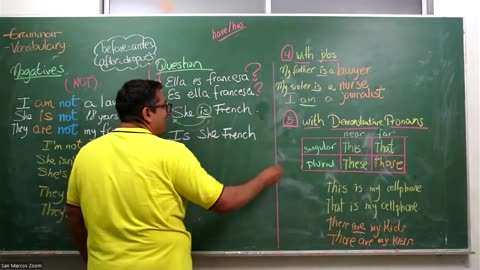 Grammar
Vocabulary
before=antes
after=después
Negatives
(NOT)
I am not a la
She is not 18 years
They are not my f
I'm not
She isn
She's
They
They
Question
¿Ella es francesa?
¿Es ella francesa?
She is French
Is She French
have/has
4 with jobs
My father is a lawyer
My sister is a nurse
I am a journalist
5 with Demonstrative Pronouns
near far
singular This That
plural These Those
This is my cellphone
That is my cellphone
These are my Kids
Those are my Kids
San Marcos Zoom